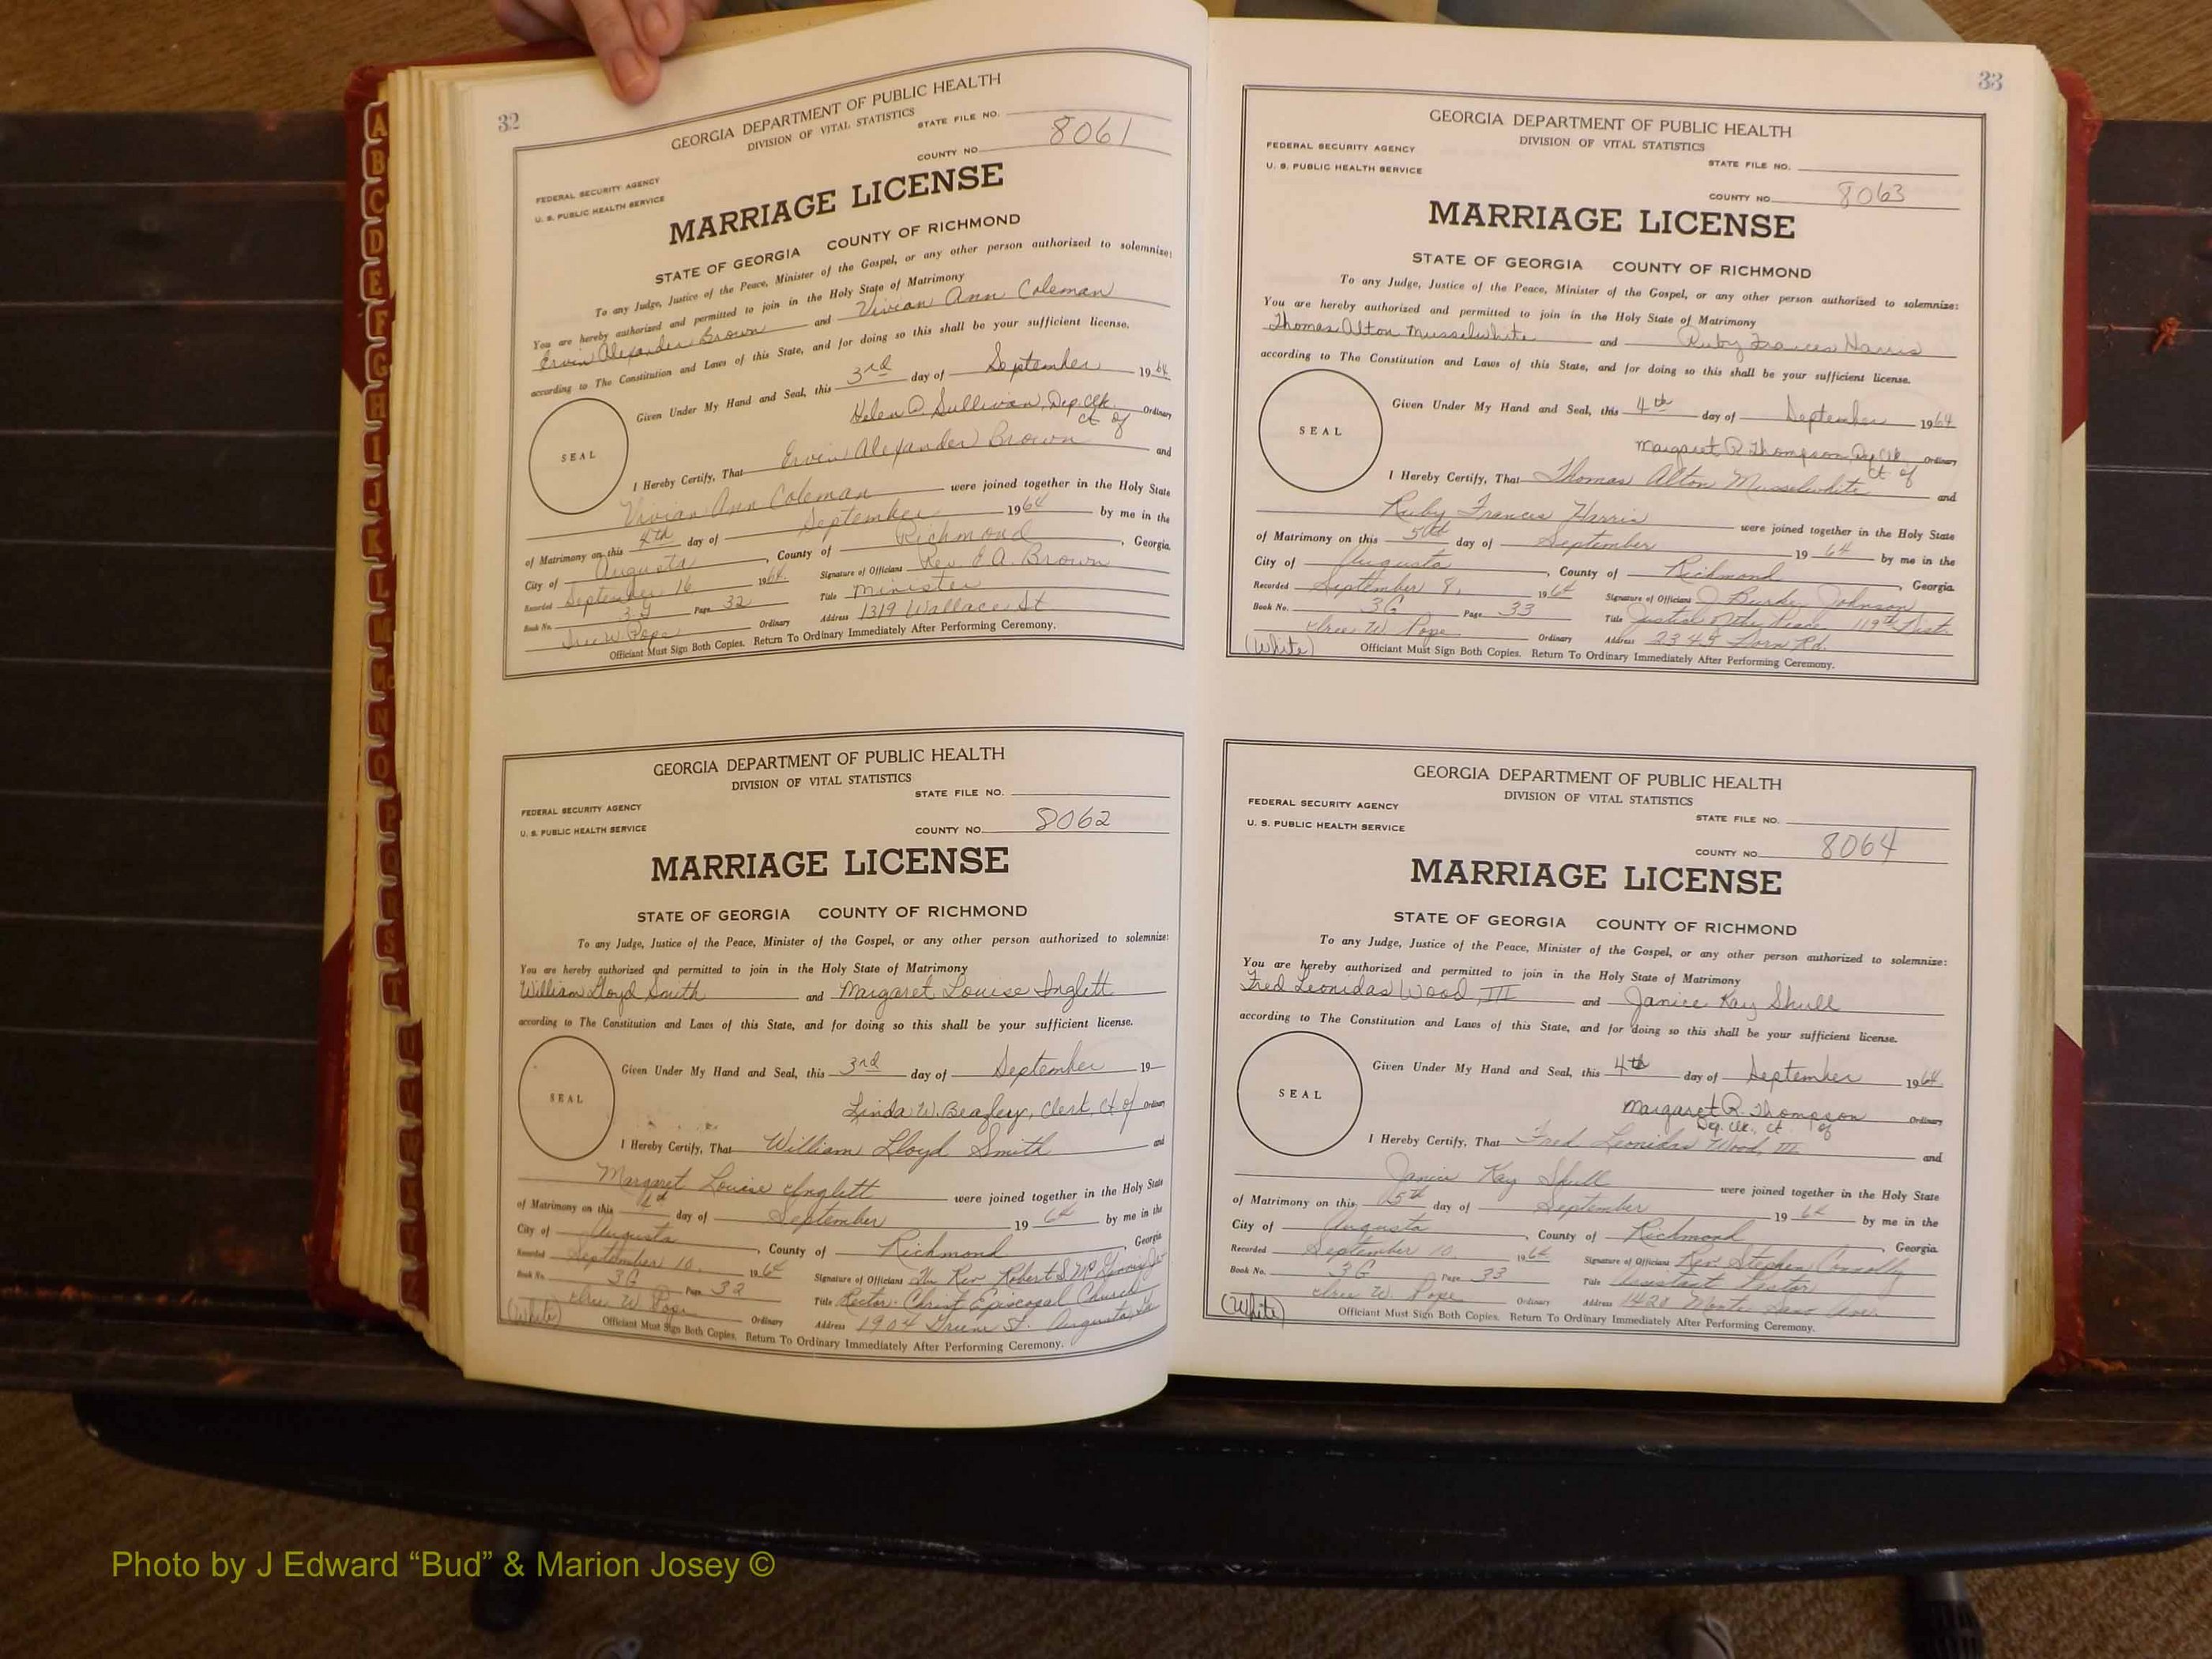 32
GEORGIA DEPARTMENT OF PUBLIC HEALTH
DIVISION OF VITAL STATISTICS
STATE FILE NO.
FEDERAL SECURITY AGENCY
U. S. PUBLIC HEALTH SERVICE
COUNTY NO. 8061
MARRIAGE LICENSE
STATE OF GEORGIA COUNTY OF RICHMOND
To any Judge, Justice of the Peace, Minister of the Gospel, or any other person authorized to solemnize:
You are hereby authorized and permitted to join in the Holy State of Matrimony
Ervin Alexander Brown and Vivian Ann Coleman
according to The Constitution and Laws of this State, and for doing so this shall be your sufficient license.
Given Under My Hand and Seal, this 3rd day of September 1964
Helen C. Sullivan, Dep. Clk. Ordinary
ct of
SEAL
I Hereby Certify, That Ervin Alexander Brown and
Vivian Ann Coleman were joined together in the Holy State
of Matrimony on this 4th day of September 1964 by me in the
City of Augusta, County of Richmond, Georgia.
Recorded September 16 1964. Signature of Officiant Rev. E. A. Brown
Book No. 3G Page 32 Title Minister
W. Pope Ordinary Address 1319 Wallace St
Officiant Must Sign Both Copies. Return To Ordinary Immediately After Performing Ceremony.
GEORGIA DEPARTMENT OF PUBLIC HEALTH
DIVISION OF VITAL STATISTICS
STATE FILE NO.
FEDERAL SECURITY AGENCY
U. S. PUBLIC HEALTH SERVICE
COUNTY NO. 8062
MARRIAGE LICENSE
STATE OF GEORGIA COUNTY OF RICHMOND
To any Judge, Justice of the Peace, Minister of the Gospel, or any other person authorized to solemnize:
You are hereby authorized and permitted to join in the Holy State of Matrimony
William Lloyd Smith and Margaret Louise Inglett
according to The Constitution and Laws of this State, and for doing so this shall be your sufficient license.
Given Under My Hand and Seal, this 3rd day of September 19
Linda W. Beazley, Clerk, Ct of Ordinary
SEAL
I Hereby Certify, That William Lloyd Smith and
Margaret Louise Inglett were joined together in the Holy State
of Matrimony on this day of September 1964 by me in the
City of Augusta, County of Richmond, Georgia
Recorded September 10, 1964 Signature of Officiant The Rev. Robert S.
Book No. 3G Page 32 Title Rector Christ Episcopal Church
W. Pope Ordinary Address 1904 Greene St. Augusta, Ga
(White) Officiant Must Sign Both Copies. Return To Ordinary Immediately After Performing Ceremony.
33
GEORGIA DEPARTMENT OF PUBLIC HEALTH
DIVISION OF VITAL STATISTICS
FEDERAL SECURITY AGENCY
STATE FILE NO.
U. S. PUBLIC HEALTH SERVICE
COUNTY NO. 8063
MARRIAGE LICENSE
STATE OF GEORGIA COUNTY OF RICHMOND
To any Judge, Justice of the Peace, Minister of the Gospel, or any other person authorized to solemnize:
You are hereby authorized and permitted to join in the Holy State of Matrimony
Thomas Alton Musselwhite and Ruby Frances Harris
according to The Constitution and Laws of this State, and for doing so this shall be your sufficient license.
Given Under My Hand and Seal, this 4th day of September 1964
Margaret R. Thompson, Dep. Clk. Ordinary
ct of
SEAL
I Hereby Certify, That Thomas Alton Musselwhite and
Ruby Frances Harris were joined together in the Holy State
of Matrimony on this 5th day of September 1964 by me in the
City of Augusta, County of Richmond, Georgia.
Recorded September 8, 1964 Signature of Officiant J. Burke Johnson
Book No. 3G Page 33 Title Justice of the Peace 119th Dist.
W. Pope Ordinary Address 2345 Rd.
(White) Officiant Must Sign Both Copies. Return To Ordinary Immediately After Performing Ceremony.
GEORGIA DEPARTMENT OF PUBLIC HEALTH
DIVISION OF VITAL STATISTICS
FEDERAL SECURITY AGENCY
STATE FILE NO.
U. S. PUBLIC HEALTH SERVICE
COUNTY NO. 8064
MARRIAGE LICENSE
STATE OF GEORGIA COUNTY OF RICHMOND
To any Judge, Justice of the Peace, Minister of the Gospel, or any other person authorized to solemnize:
You are hereby authorized and permitted to join in the Holy State of Matrimony
Fred Leonidas Wood, III and Janice Kay Shull
according to The Constitution and Laws of this State, and for doing so this shall be your sufficient license.
Given Under My Hand and Seal, this 4th day of September 1964
Margaret R. Thompson Ordinary
Dep. Clk., ct of
SEAL
I Hereby Certify, That Fred Leonidas Wood, III and
Janice Kay Shull were joined together in the Holy State
of Matrimony on this 5th day of September 1964 by me in the
City of Augusta, County of Richmond, Georgia.
Recorded September 10, 1964 Signature of Officiant Rev. Stephen Connolly
Book No. 3G Page 33 Title Assistant Pastor
W. Pope Ordinary Address 1420 Monte Sano Ave.
(White) Officiant Must Sign Both Copies. Return To Ordinary Immediately After Performing Ceremony.
A
B
C
D
E
F
G
H
I
J
K
L
M
Mc
N
O
P
Q
R
S
T
Photo by J Edward “Bud” & Marion Josey ©